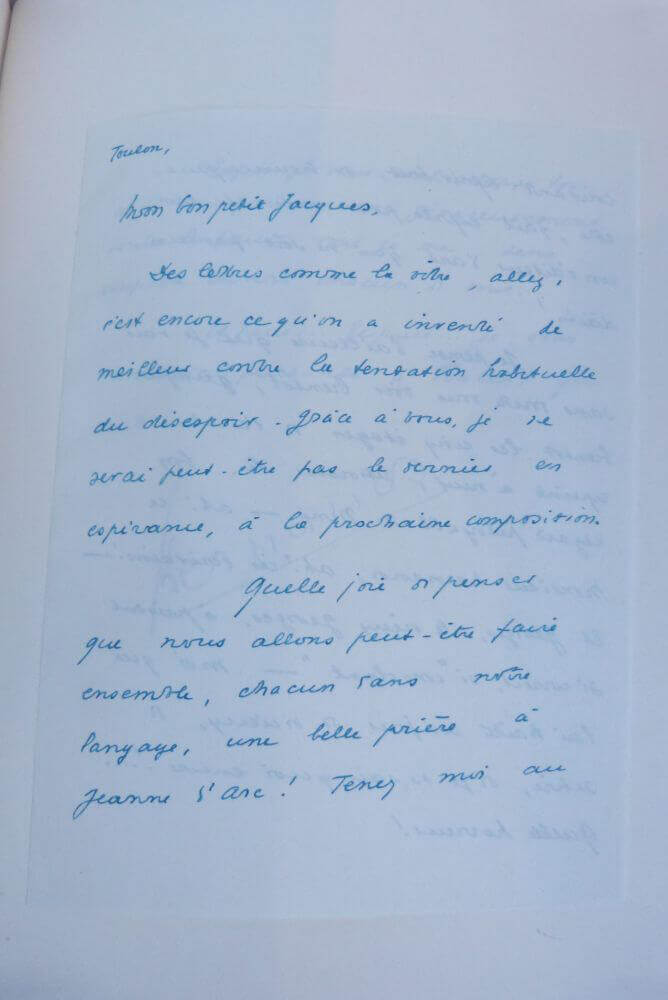 Toulon,
Mon bon petit Jacques,
Des lettres comme la vôtre, allez,
c'est encore ce qu'on a inventé de
meilleur contre la tentation habituelle
du désespoir. Grâce à vous, je ne
serai peut-être pas le dernier en
espérance, à la prochaine composition.
Quelle joie de penser
que nous allons peut-être faire
ensemble, chacun dans notre
langage, une belle prière à
Jeanne d'Arc ! Tenez moi au